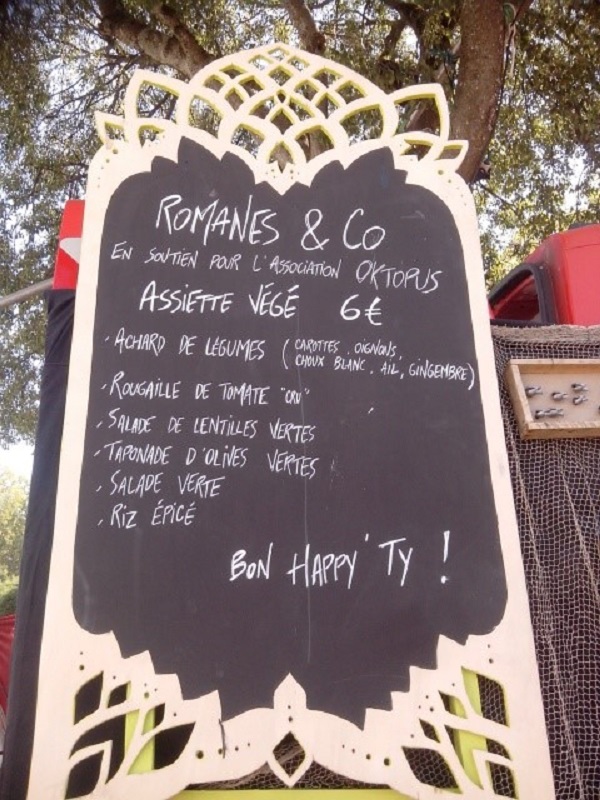 ROMANES & CO
EN SOUTIEN POUR L'ASSOCIATION OKTOPUS
ASSIETTE VÉGÉ 6€
- ACHARD DE LÉGUMES (CAROTTES, OIGNONS,
CHOUX BLANC, AIL, GINGEMBRE)
- ROUGAILLE DE TOMATE "CRU"
- SALADE DE LENTILLES VERTES
- TAPONADE D'OLIVES VERTES
- SALADE VERTE
- RIZ ÉPICÉ
BON HAPPY'TY !